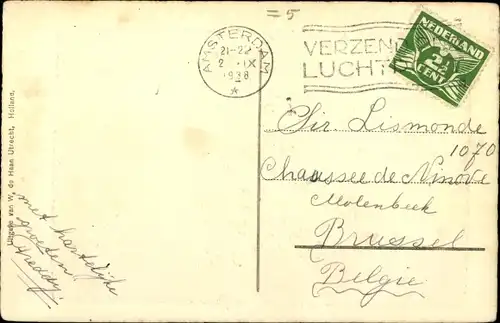 = 5
AMSTERDAM
21-22
2 IX
1938
VERZEND
LUCHT
NEDERLAND
2½
CENT
Sir. Lismonde
1070
Chaussee de Ninove
Molenbeek
Brussel
Belgie
met hartelijke
groeten
Freddy.
Uitgave van W. de Haan Utrecht, Holland.